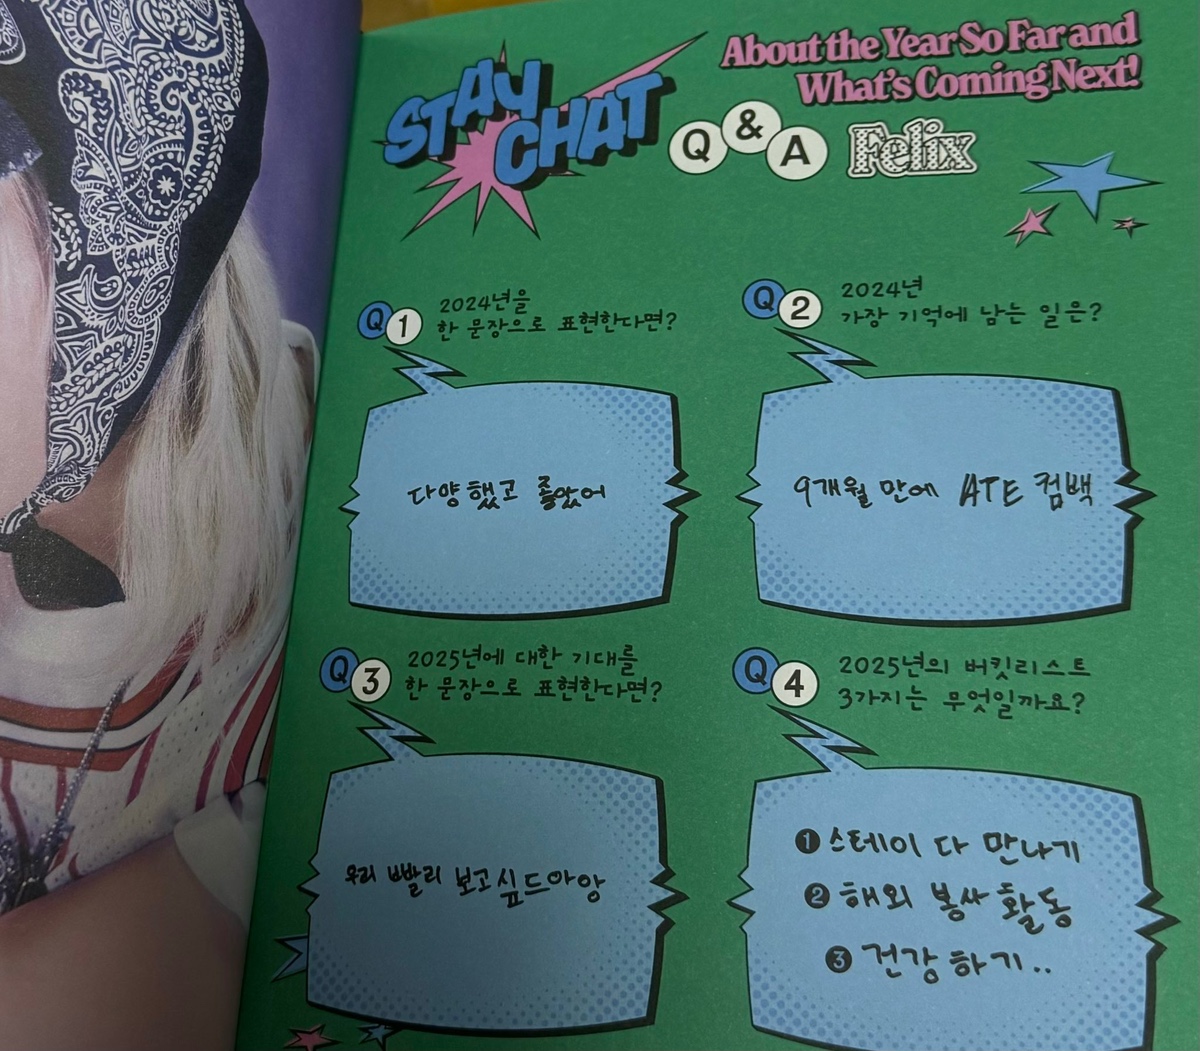 STAY
CHAT
About the Year So Far and
What's Coming Next!
Q & A Felix
Q1 2024년을
한 문장으로 표현한다면?
다양했고 좋았어
Q2 2024년
가장 기억에 남는 일은?
9개월 만에 ATE 컴백
Q3 2025년에 대한 기대를
한 문장으로 표현한다면?
우리 빨리 보고싶드아앙
Q4 2025년의 버킷리스트
3가지는 무엇일까요?
❶ 스테이 다 만나기
❷ 해외 봉사 활동
❸ 건강하기..